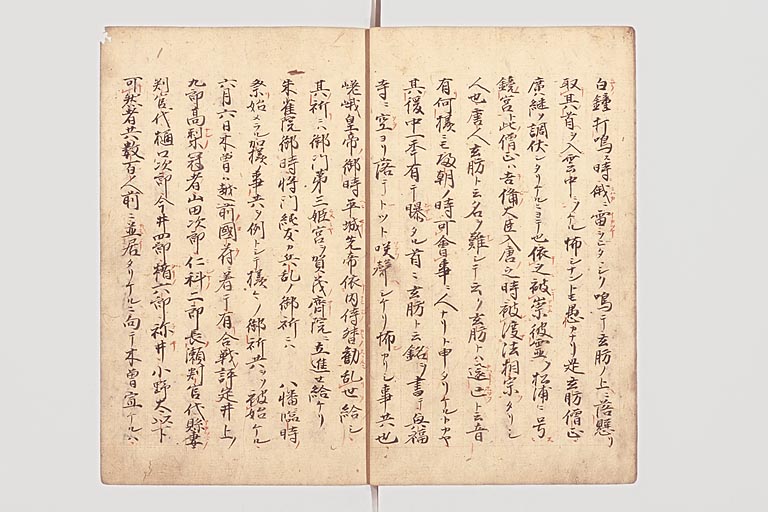 白鐘打鳴ス時俄ニ雷ヲヒタヽシク鳴テ玄肪ノ上ニ落懸リ
取其首ヲ入雲中ケル怖シナントモ愚ナリ是玄肪僧正
廣継ヲ調伏シタリケルニヨテ也依之被崇彼霊ヲ松浦ニ号
鏡宮此僧正ハ吉備大臣入唐之時被渡法相宗タリシ
人也唐人玄肪ト云名ヲ難シテ云ク玄肪トハ還亡ト云音
有何様ニモ皈朝ノ時可會事ニ人ナリト申タリケルトカヤ
其後中一年有テ曝タル首ニ玄肪ト云銘ヲ書テ興福
寺ニ空ヨリ落テトツト咲聲シケリ怖カリシ事共也
嵯峨皇帝御時平城先帝依内侍督勧乱世給シニ
其祈ニハ御門第三姫宮ヲ賀茂齊院ニ立進セ給ケリ
朱雀院御時将門純友カ兵乱ノ御祈ニハ八幡臨時
祭始メラル加様ノ事共ヲ例トシテ様々ノ御祈共ヲ被始ケル
六月六日木曽ハ越前國府ニ着テ有合戦評定井上ノ
九郎高梨冠者山田次郎仁科二郎長瀬判官代
判官代樋口次郎今井四郎楯六郎祢井小野太以下
可然者共数百人前ニ並居タリケルニ向テ木曽宣ケルハ